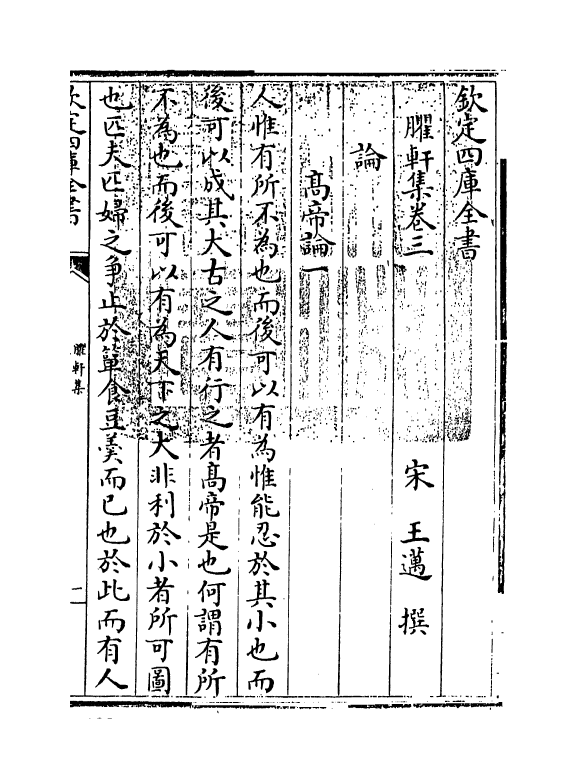 欽定四庫全書
臞軒集卷三
宋 王邁 撰
論
髙帝論一
人惟有所不為也而後可以有為惟能忍於其小也而
後可以成其大古之人有行之者髙帝是也何謂有所
不為也而後可以有為天下之大非利於小者所可圖
也匹夫匹婦之争止於簞食豆羹而已也於此而有人
欽定四庫全書
臞軒集